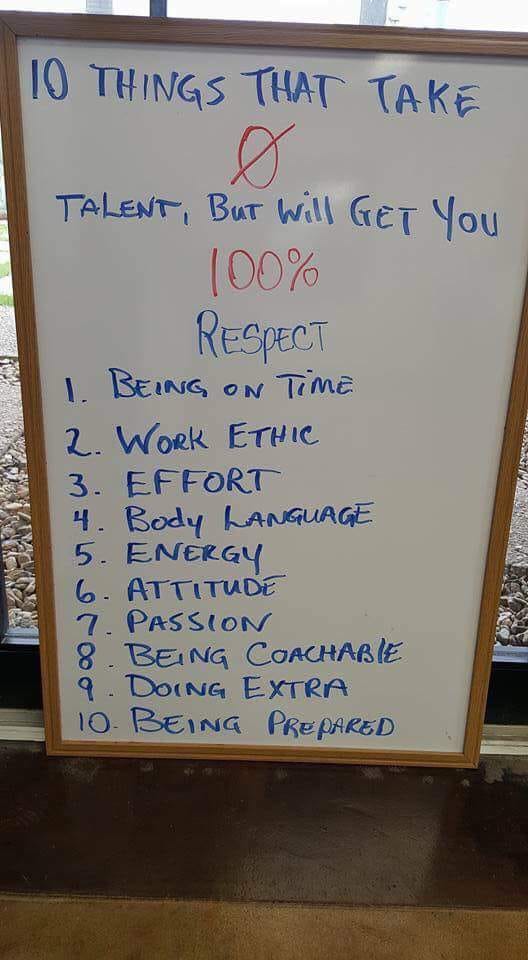 10 THINGS THAT TAKE
0
TALENT, BUT Will GET You
100%
RESPECT
1. BEING ON TIME
2. WORK ETHIC
3. EFFORT
4. Body LANGUAGE
5. ENERGY
6. ATTITUDE
7. PASSION
8. BEING COACHABlE
9. DOING EXTRA
10. BEING PREPARED